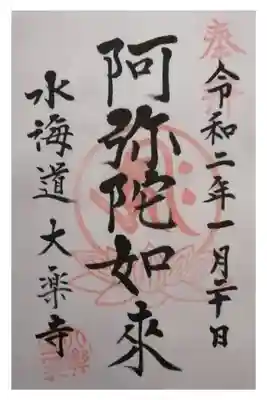 奉拝
令和二年一月二十日
阿弥陀如来
水海道大楽寺